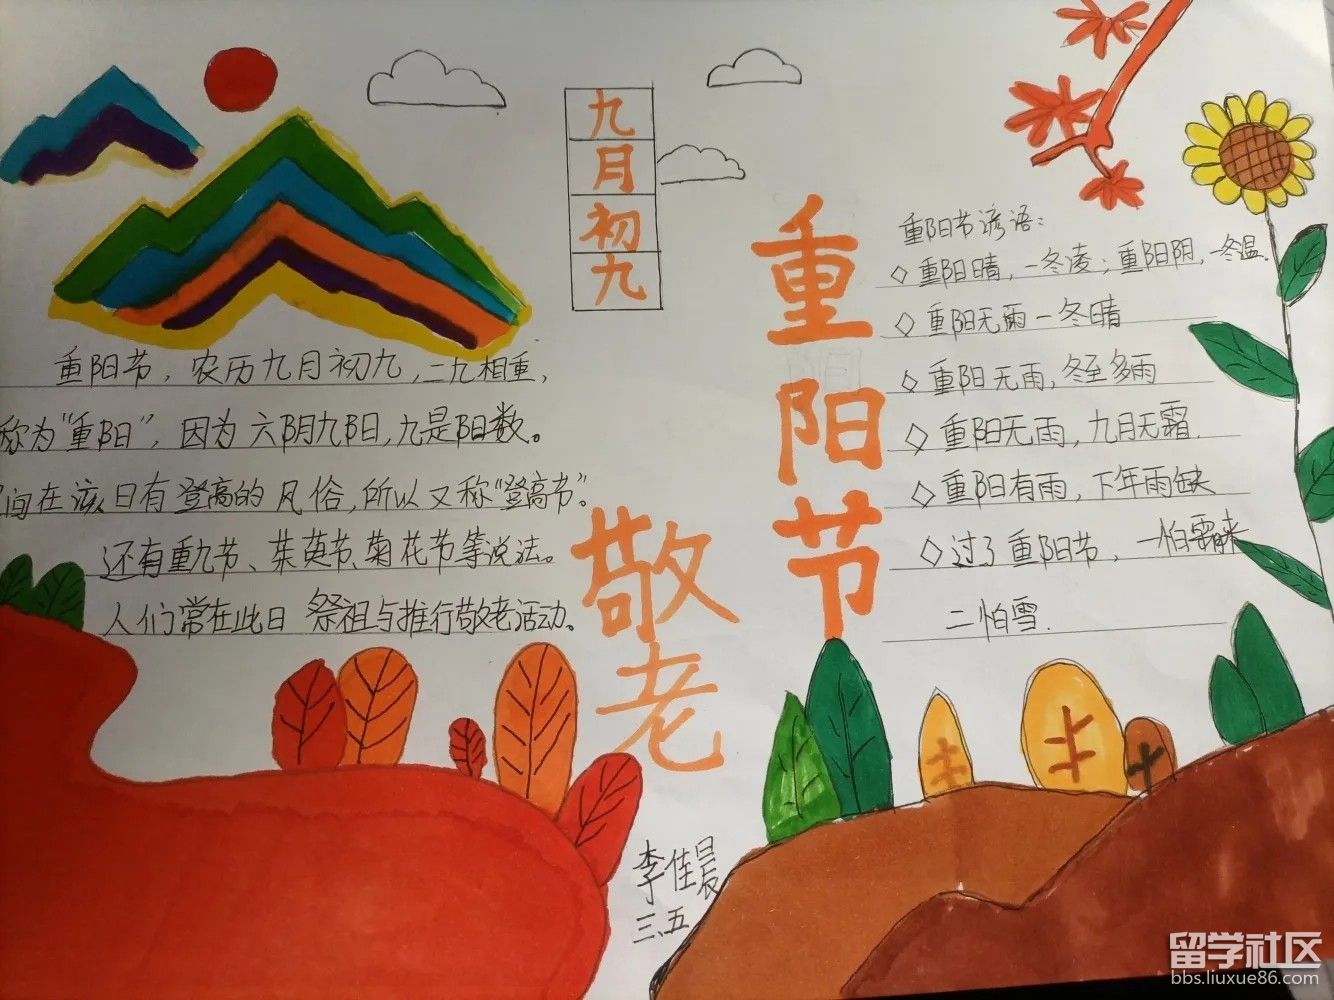 九月初九
重阳节
敬老
重阳节，农历九月初九，二九相重，
称为“重阳”，因为六阴九阳，九是阳数。
间在该日有登高的风俗，所以又称“登高节”。
还有重九节、茱萸节、菊花节等说法。
人们常在此日 祭祖与推行敬老活动。
重阳节谚语：
◇重阳晴，一冬凌；重阳阴，一冬温.
◇重阳无雨一冬晴
◇重阳无雨，冬至多雨
◇重阳无雨，九月无霜.
◇重阳有雨，下年雨缺
◇过了重阳节，一怕霜来
二怕雪.
李佳晨
三、五
留学社区
bbs.liuxue86.com